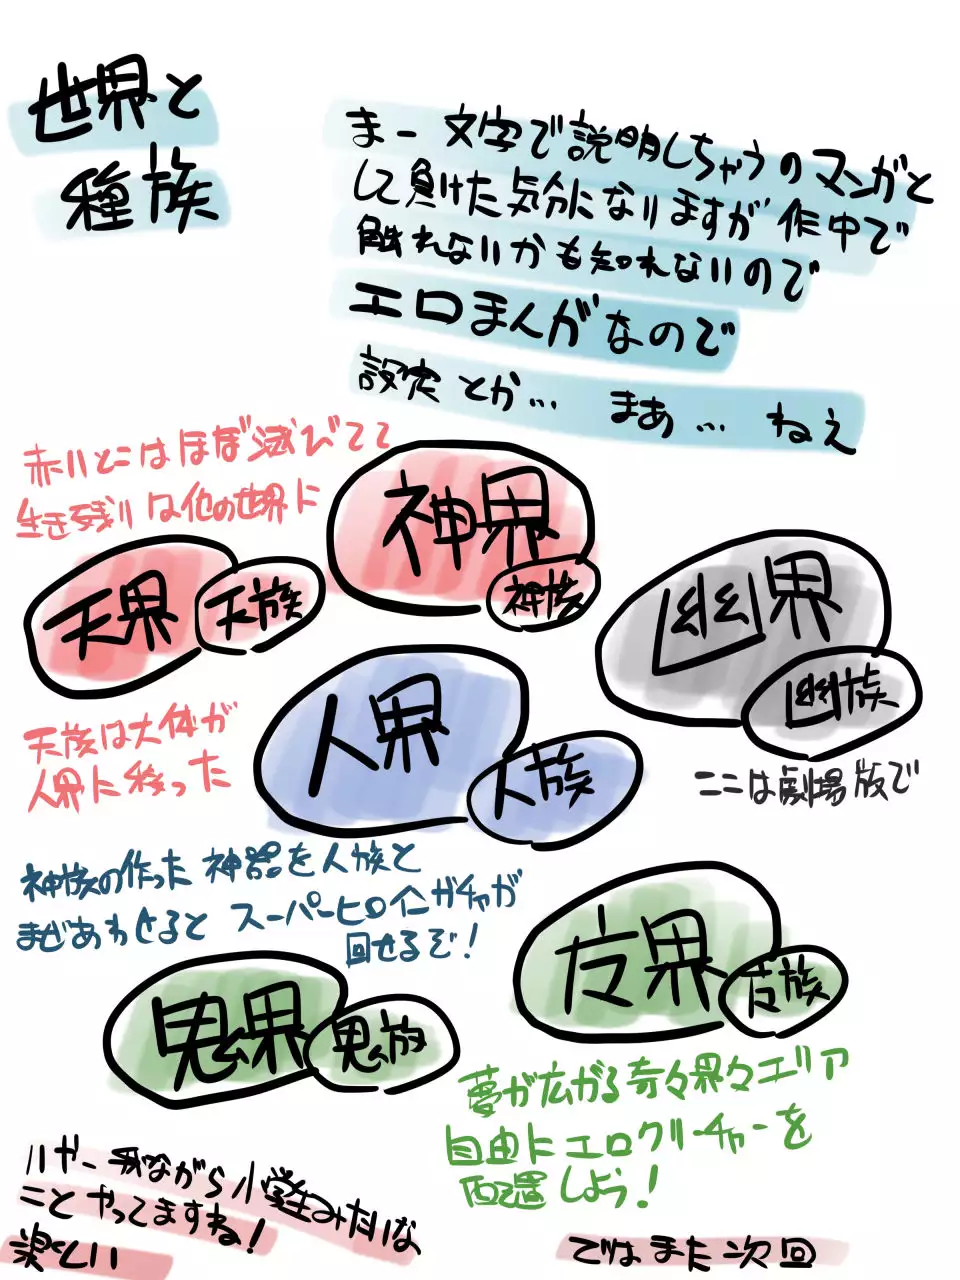 世界と
種族
まー文字で説明しちゃうのマンガと
して負けた気分になりますが作中で
触れないかも知れないので
エロまんがなので
設定とか… まあ… ねえ
赤いとこはほぼ滅びてて
生き残りは他の世界に
神界
神族
天界
天族
幽界
幽族
人界
人族
天族は大体が
人界に移った
ここは劇場版で
神族の作った神器を人族と
まぜあわせると スーパーヒロインガチャが
回せるぞ!
皮界
皮族
鬼界
鬼族
夢が広がる奇々界々エリア
自由にエロクリーチャーを
配置しよう!
いやー我ながら小学生みたいな
ことやってますね!
楽しい
ではまた次回